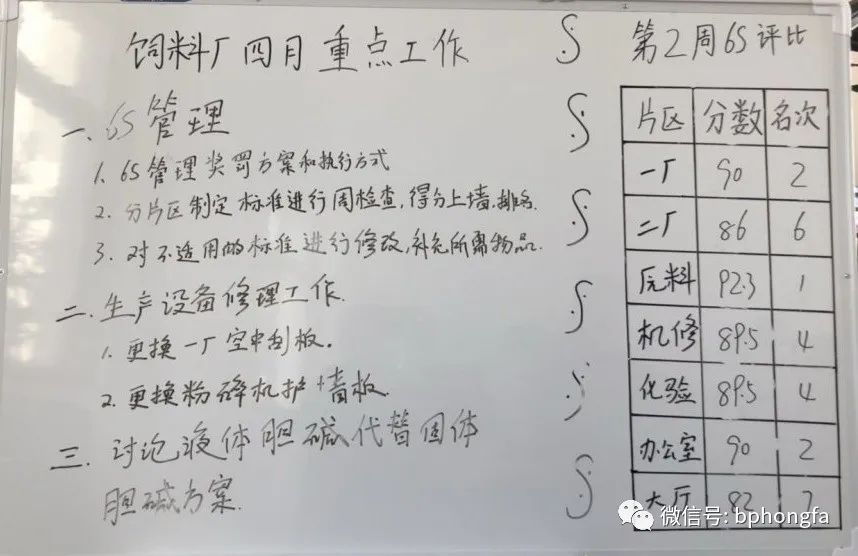 饲料厂四月重点工作
一、6S管理
1. 6S管理奖罚方案和执行方式
2. 分片区制定标准进行周检查,得分上墙,排名.
3. 对不适用的标准进行修改,补充所需物品.
二. 生产设备修理工作.
1. 更换一厂空中刮板.
2. 更换粉碎机护墙板.
三. 讨论液体胆碱代替固体
胆碱方案.
第2周6S评比
片区 分数 名次
一厂 90 2
二厂 86 6
原料 92.3 1
机修 89.5 4
化验 89.5 4
办公室 90 2
大厅 82 7
微信号: bphongfa